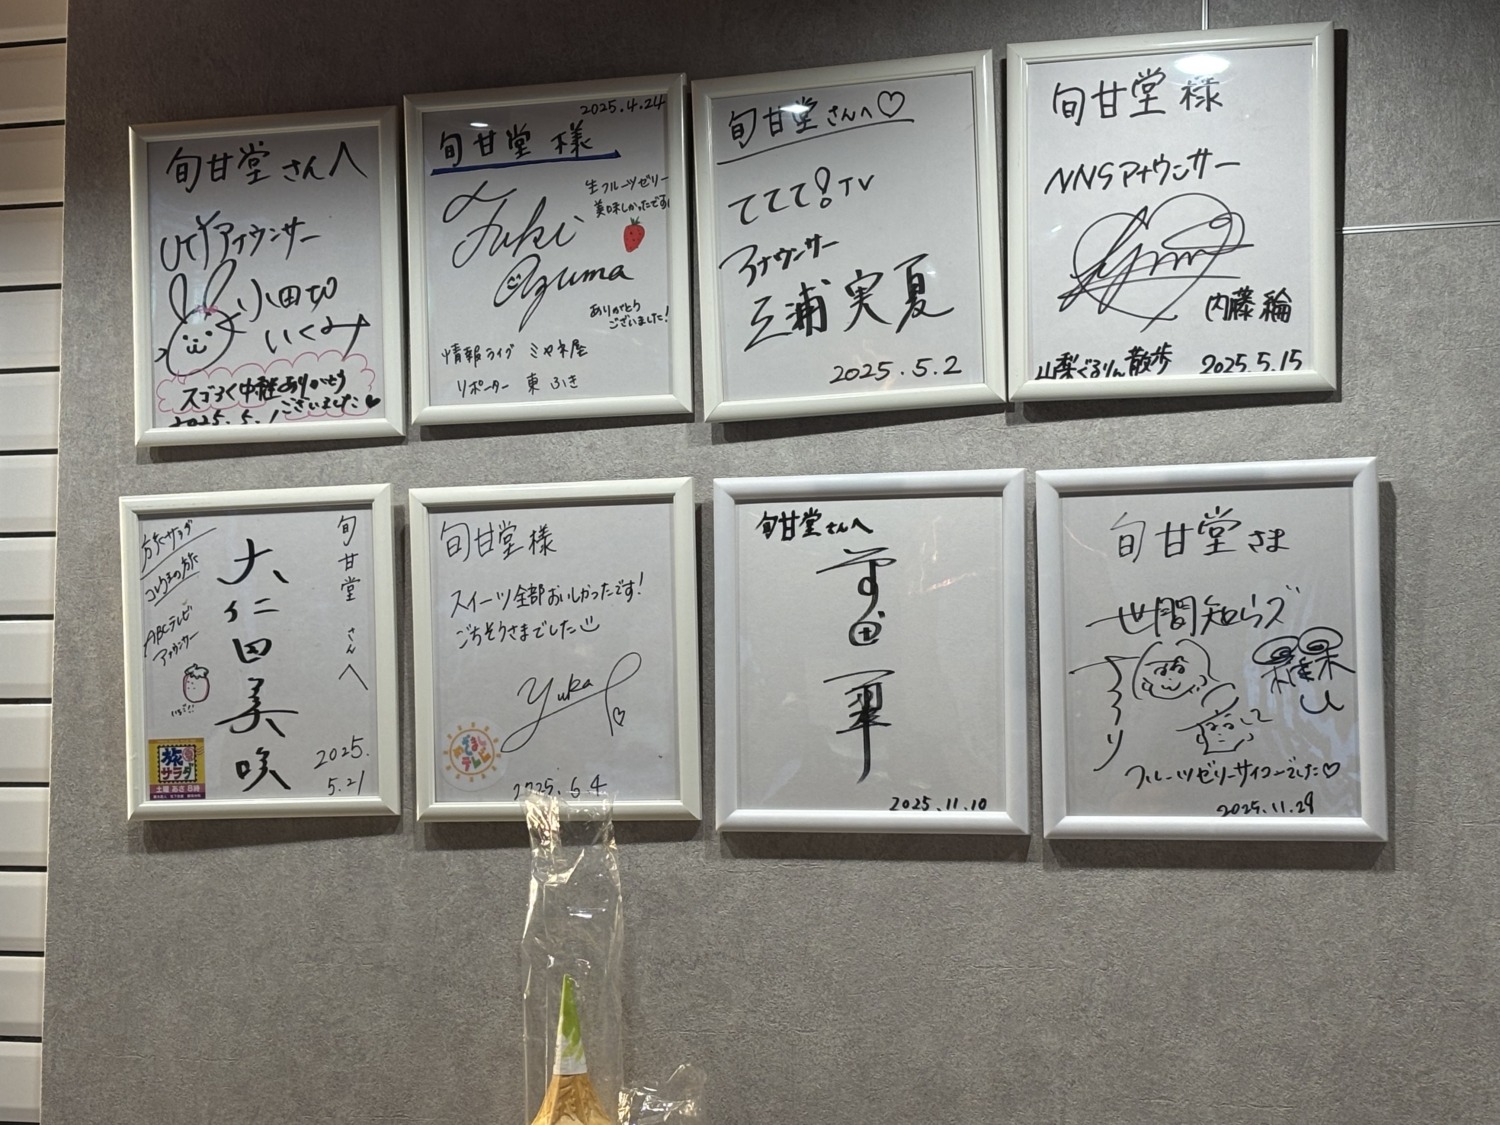 旬甘堂さんへ
UTYアナウンサー
小田切
いくみ
スゴろく中継ありがとう
ございました♥
2025.5.1
2025.4.24
旬甘堂 様
生フルーツゼリー
美味しかったです!
Fuki
Ozuma
ありがとう
ございました!
情報ライブ ミヤネ屋
リポーター 東 ふき
旬甘堂さんへ♡
ててて!TV
アナウンサー
三浦実夏
2025.5.2
旬甘堂 様
NNSアナウンサー
内藤 綸
山梨ぐるりん散歩 2025.5.15
旬甘堂 さんへ
大仁田美咲
旅サラダ
コレうまの旅
ABCテレビ
アナウンサー
いちご!!
旅
サラダ
土曜 あさ 8時
2025.
5.21
旬甘堂 様
スイーツ全部おいしかったです!
ごちそうさまでした
Yuka
テレビ
2025.6.4
旬甘堂さんへ
2025.11.10
旬甘堂さま
世間知らズ
フルーツゼリーサイコーでした♡
2025.11.29